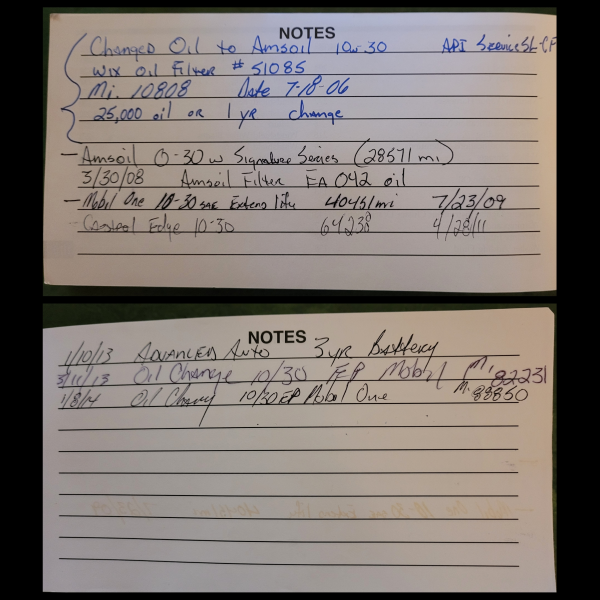 NOTES
Changed Oil to Amsoil 10w-30 API Service SL-CF
Wix Oil Filter # 51085
Mi. 10808 Date 7-18-06
25,000 oil or 1 yr change
- Amsoil 0-30 w Signature Series (28571 mi)
3/30/08 Amsoil Filter EA 042 oil
- Mobil One 10-30 SAE Extens life 40451 mi 7/23/09
- Castrol Edge 10-30 64238 4/28/11
NOTES
1/10/13 Advanced Auto 3 yr Battery
3/11/13 Oil Change 10/30 EP Mobil Mi. 82231
1/8/14 Oil Chang 10/30 EP Mobil One Mi. 88850